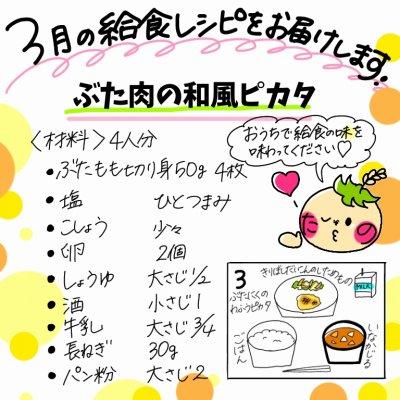 3月の給食レシピをお届けします!
ぶた肉の和風ピカタ
<材料>4人分
• ぶたもも切り身50g 4枚
• 塩 ひとつまみ
• こしょう 少々
• 卵 2個
• しょうゆ 大さじ1/2
• 酒 小さじ1
• 牛乳 大さじ3/4
• 長ねぎ 30g
• パン粉 大さじ2
おうちで給食の味を
味わってください♡
3
きりぼしだいこんのしためもの
MILK
ぶたにくの
わふうピカタ
ごはん
いなかじる